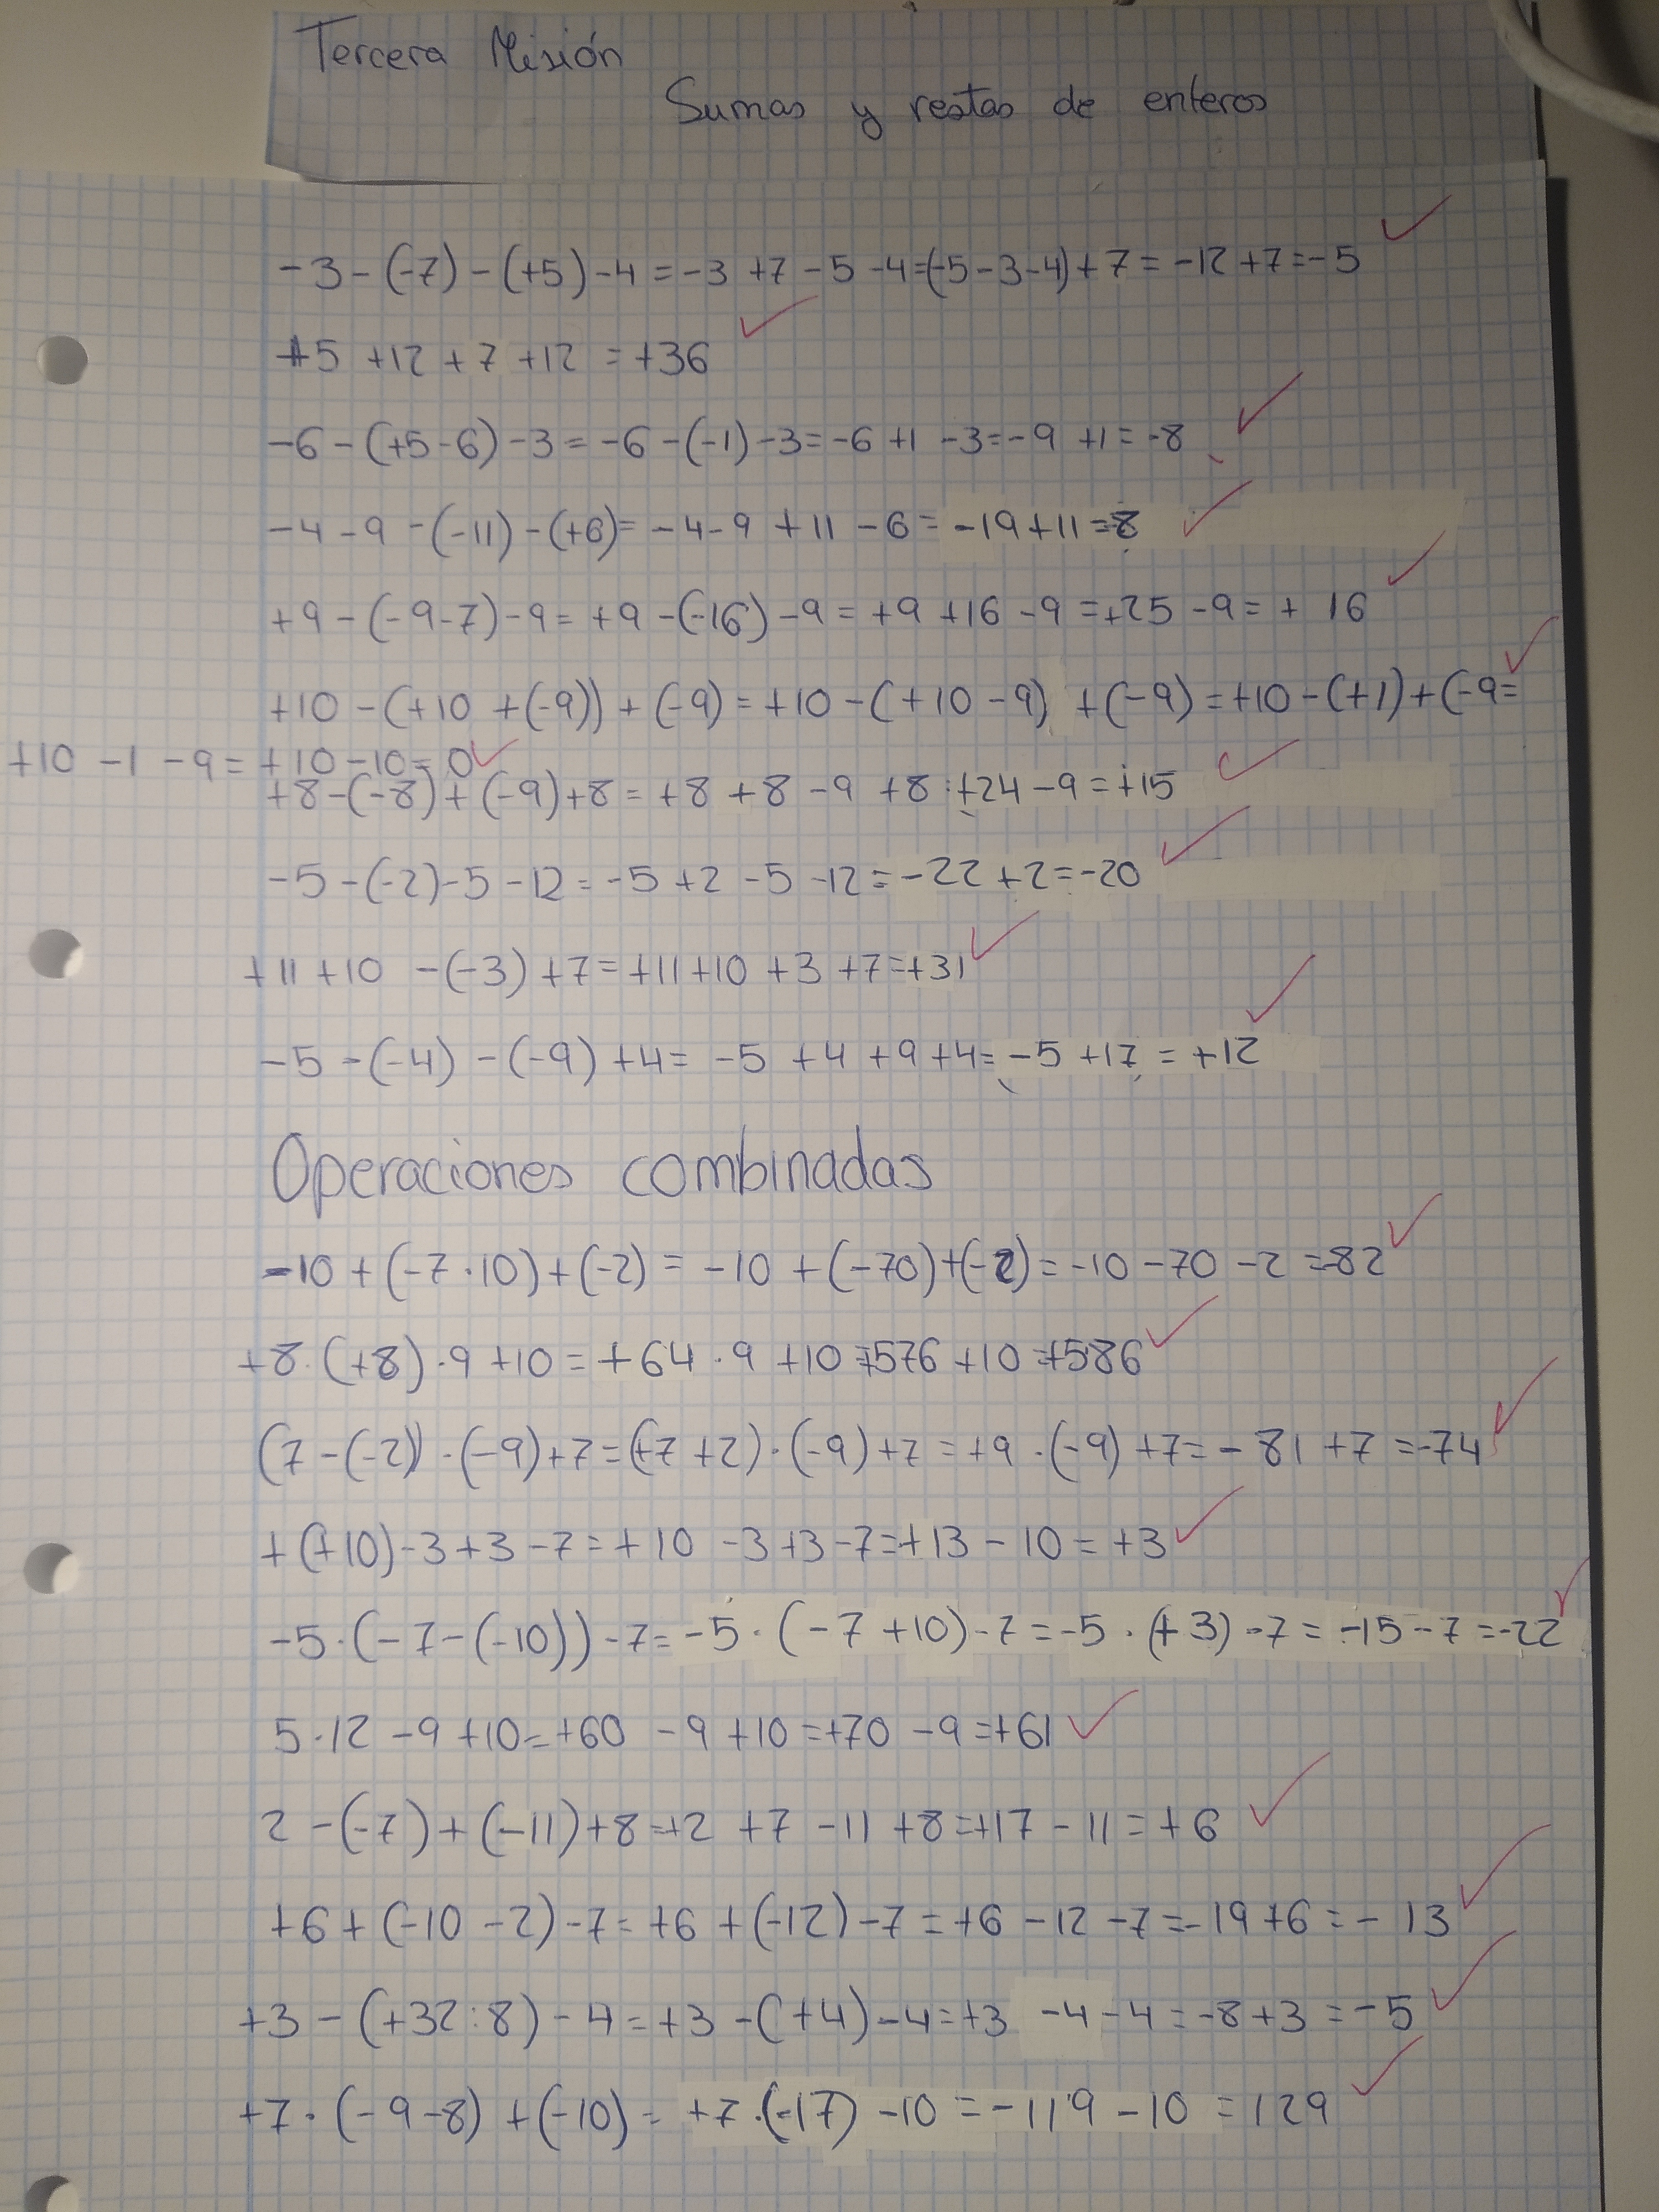 Tercera Misión
Sumas y restas de enteros
-3-(-7)-(+5)-4=-3+7-5-4=(-5-3-4)+7=-12+7=-5
+5+12+7+12=+36
-6-(+5-6)-3=-6-(-1)-3=-6+1-3=-9+1=-8
-4-9-(-11)-(+6)=-4-9+11-6=-19+11=-8
+9-(-9-7)-9=+9-(-16)-9=+9+16-9=+25-9=+16
+10-(+10+(-9))+(-9)=+10-(+10-9)+(-9)=+10-(+1)+(-9=
+10-1-9=+10-10=0
+8-(-8)+(-9)+8=+8+8-9+8=+24-9=+15
-5-(-2)-5-12=-5+2-5-12=-22+2=-20
+11+10-(-3)+7=+11+10+3+7=+31
-5-(-4)-(-9)+4=-5+4+9+4=-5+17=+12
Operaciones combinadas
-10+(-7·10)+(-2)=-10+(-70)+(-2)=-10-70-2=-82
+8·(+8)·9+10=+64·9+10=+576+10=+586
(7-(-2))·(-9)+7=(+7+2)·(-9)+7=+9·(-9)+7=-81+7=-74
+(+10)-3+3-7=+10-3+3-7=+13-10=+3
-5·(-7-(-10))-7=-5·(-7+10)-7=-5·(+3)-7=-15-7=-22
5·12-9+10=+60-9+10=+70-9=+61
2-(-7)+(-11)+8=+2+7-11+8=+17-11=+6
+6+(-10-2)-7=+6+(-12)-7=+6-12-7=-19+6=-13
+3-(+32:8)-4=+3-(+4)-4=+3-4-4=-8+3=-5
+7·(-9-8)+(-10)=+7·(-17)-10=-119-10=129